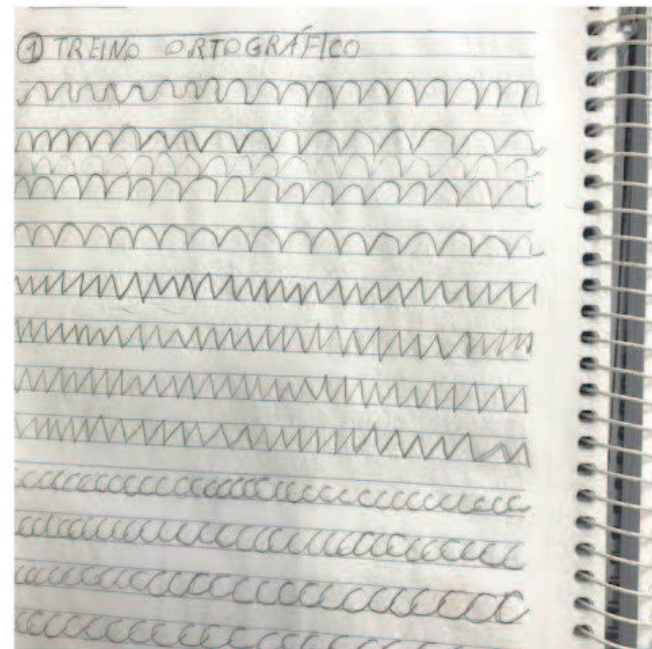 ① TREINO ORTOGRÁFICO